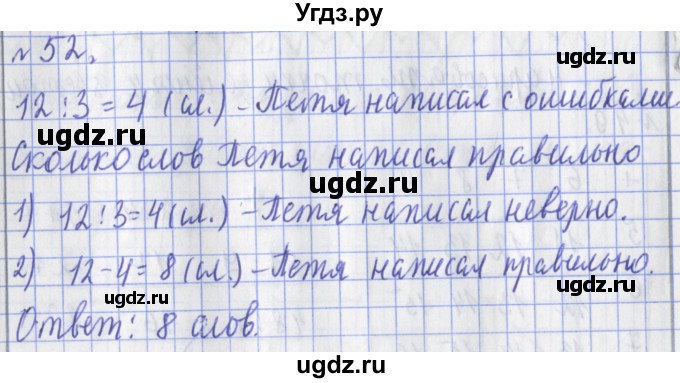 Угдз.ру
№ 52.
12 : 3 = 4 (сл.) – Петя написал с ошибками
Сколько слов Петя написал правильно
1) 12 : 3 = 4 (сл.) – Петя написал неверно.
2) 12 – 4 = 8 (сл.) – Петя написал правильно.
Ответ: 8 слов.
ugdz.ru
ugdz.ru
ugdz.ru
ugdz.ru
ugdz.ru
ugdz.ru
ugdz.ru
ugdz.ru
ugdz.ru